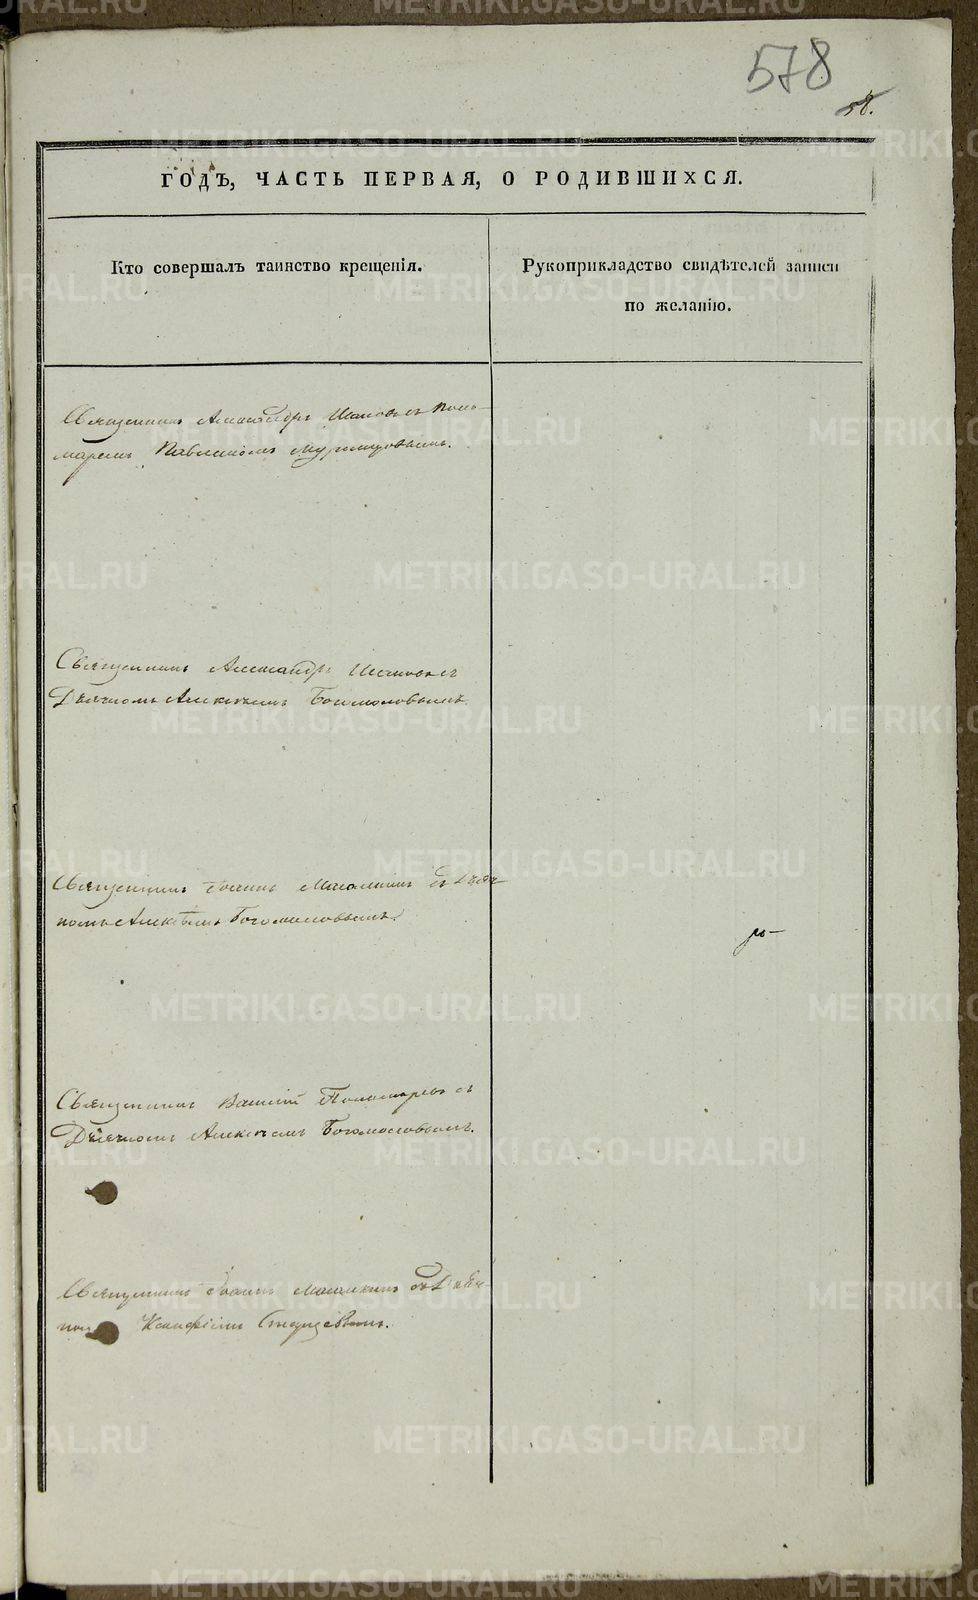 578
58.
ГОДЪ, ЧАСТЬ ПЕРВАЯ, О РОДИВШИХСЯ.
Кто совершалъ таинство крещенія.
Рукоприкладство свидѣтелей записи
по желанію.
Священникъ Александръ Исаковъ съ Поно-
маремъ Павлиномъ
Священникъ Александръ Исаковъ съ
Дьячкомъ Алексѣемъ Богомоловымъ.
Священникъ Іоаннъ съ Дьяч-
комъ Алексѣемъ Богомоловымъ.
Священникъ Василій Пономаревъ съ
Дьячкомъ Алексѣемъ Богомоловымъ.
Священникъ Іоаннъ съ Дьяч-
METRIKI.GASO-URAL.RU